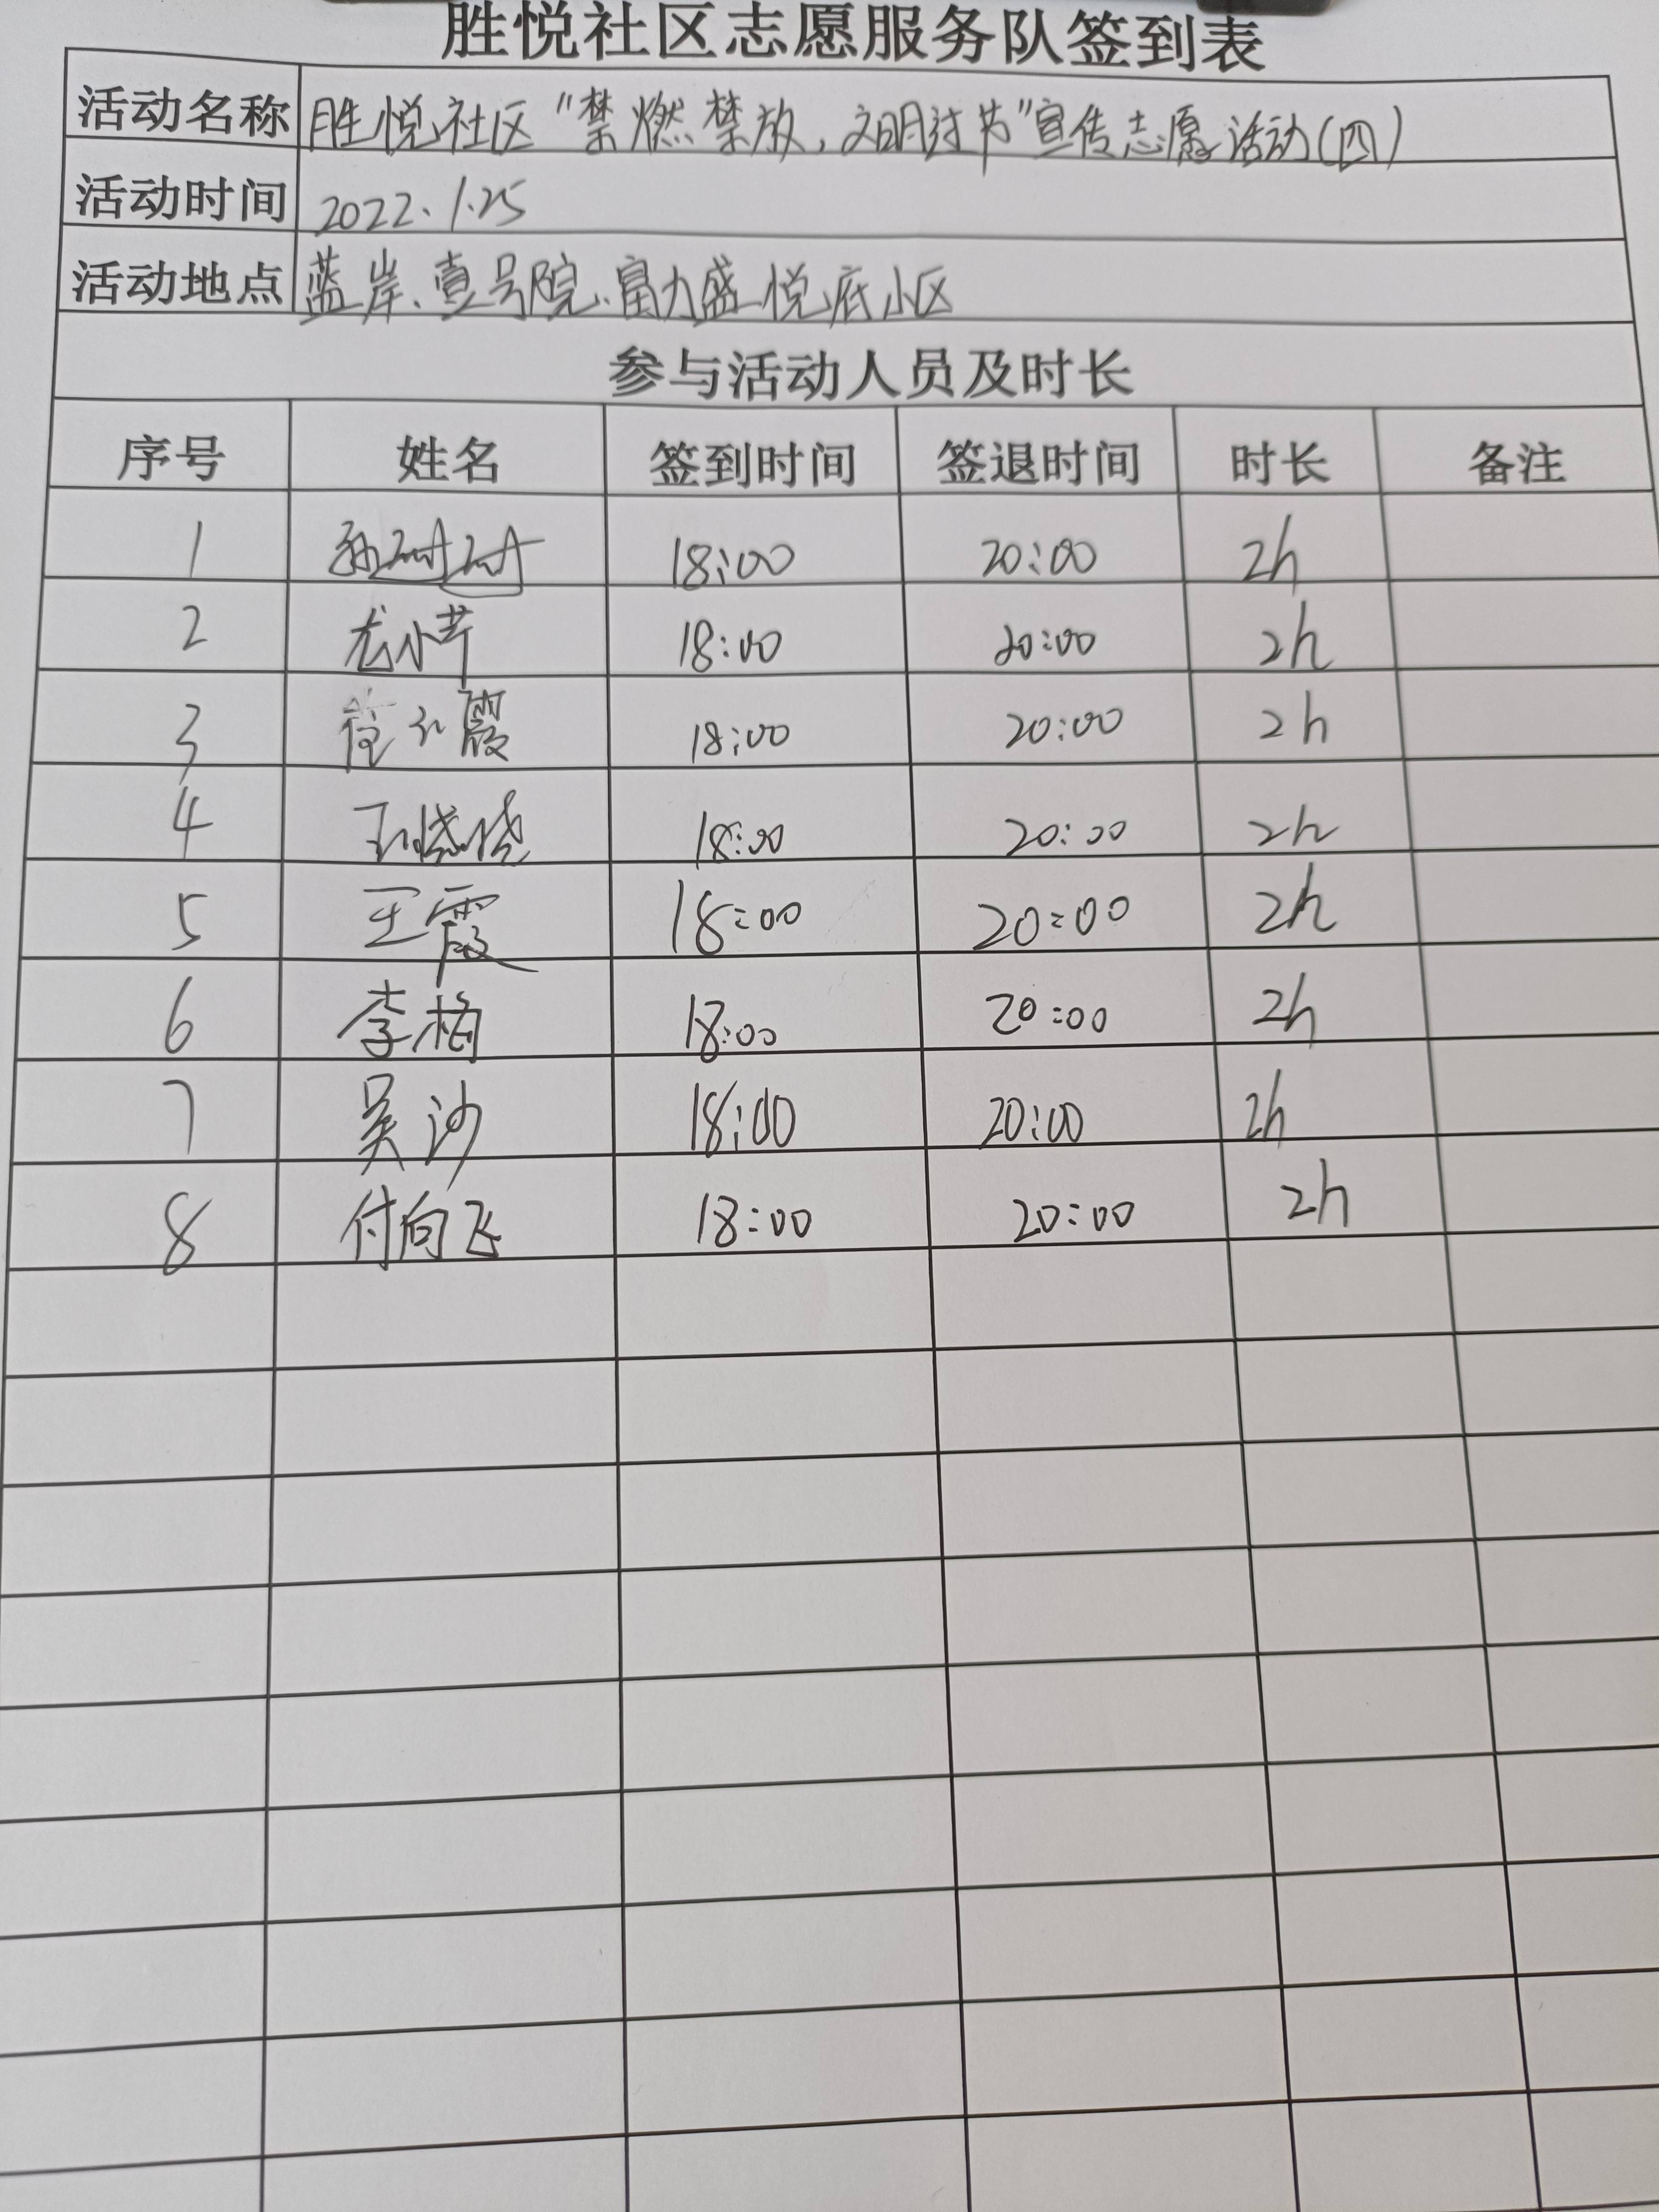 胜悦社区志愿服务队签到表
活动名称 胜悦社区"禁燃禁放,文明过节"宣传志愿活动(四)
活动时间 2022.1.25
活动地点 蓝岸、壹号院、富力盛悦底小区
参与活动人员及时长
序号 姓名 签到时间 签退时间 时长 备注
1 18:00 20:00 2h
2 尤小芹 18:00 20:00 2h
3 霞 18:00 20:00 2h
4 王晓晓 18:00 20:00 2h
5 王霞 18:00 20:00 2h
6 李梅 18:00 20:00 2h
7 吴沙 18:00 20:00 2h
8 付向飞 18:00 20:00 2h